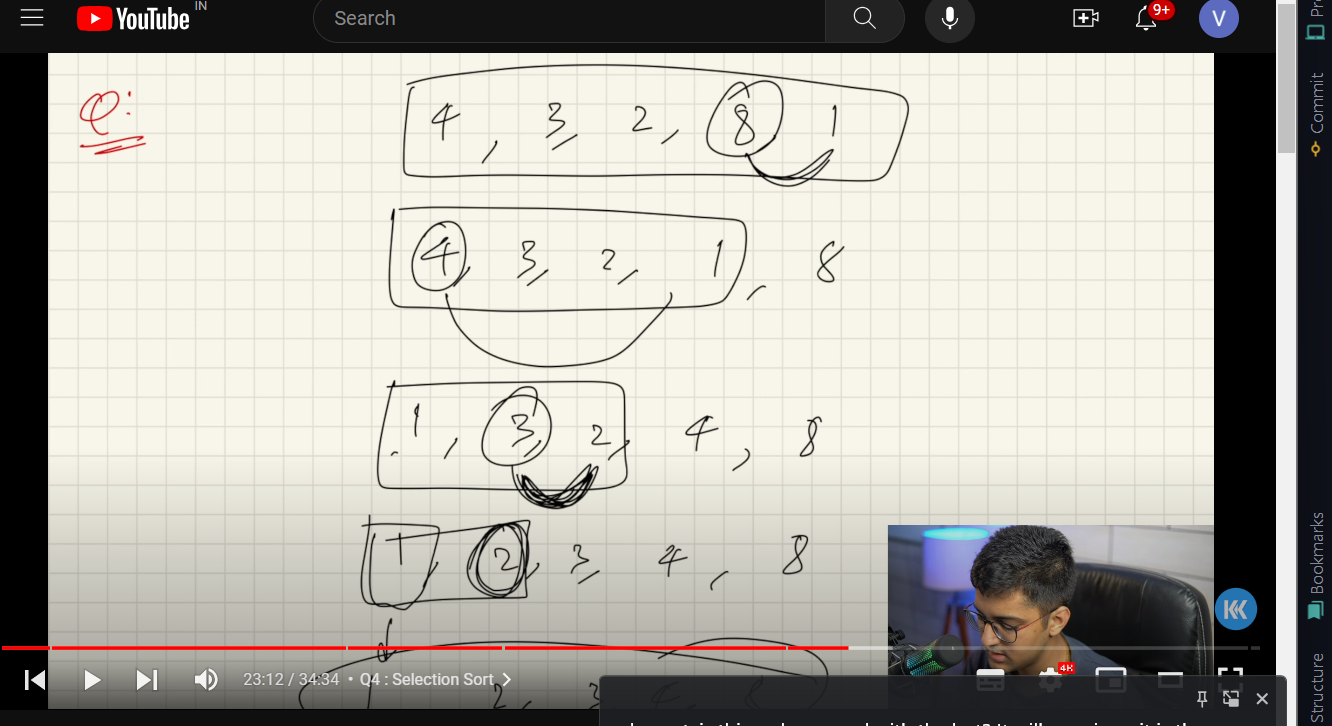 YouTube IN
Search
9+
V
Q:
4, 3, 2, 8 1
4, 3, 2, 1, 8
1, 3, 2, 4, 8
1, 2, 3, 4, 8
2, 3, 4, 8
4K
23:12 / 34:34 • Q4 : Selection Sort
Commit
Bookmarks
Structure